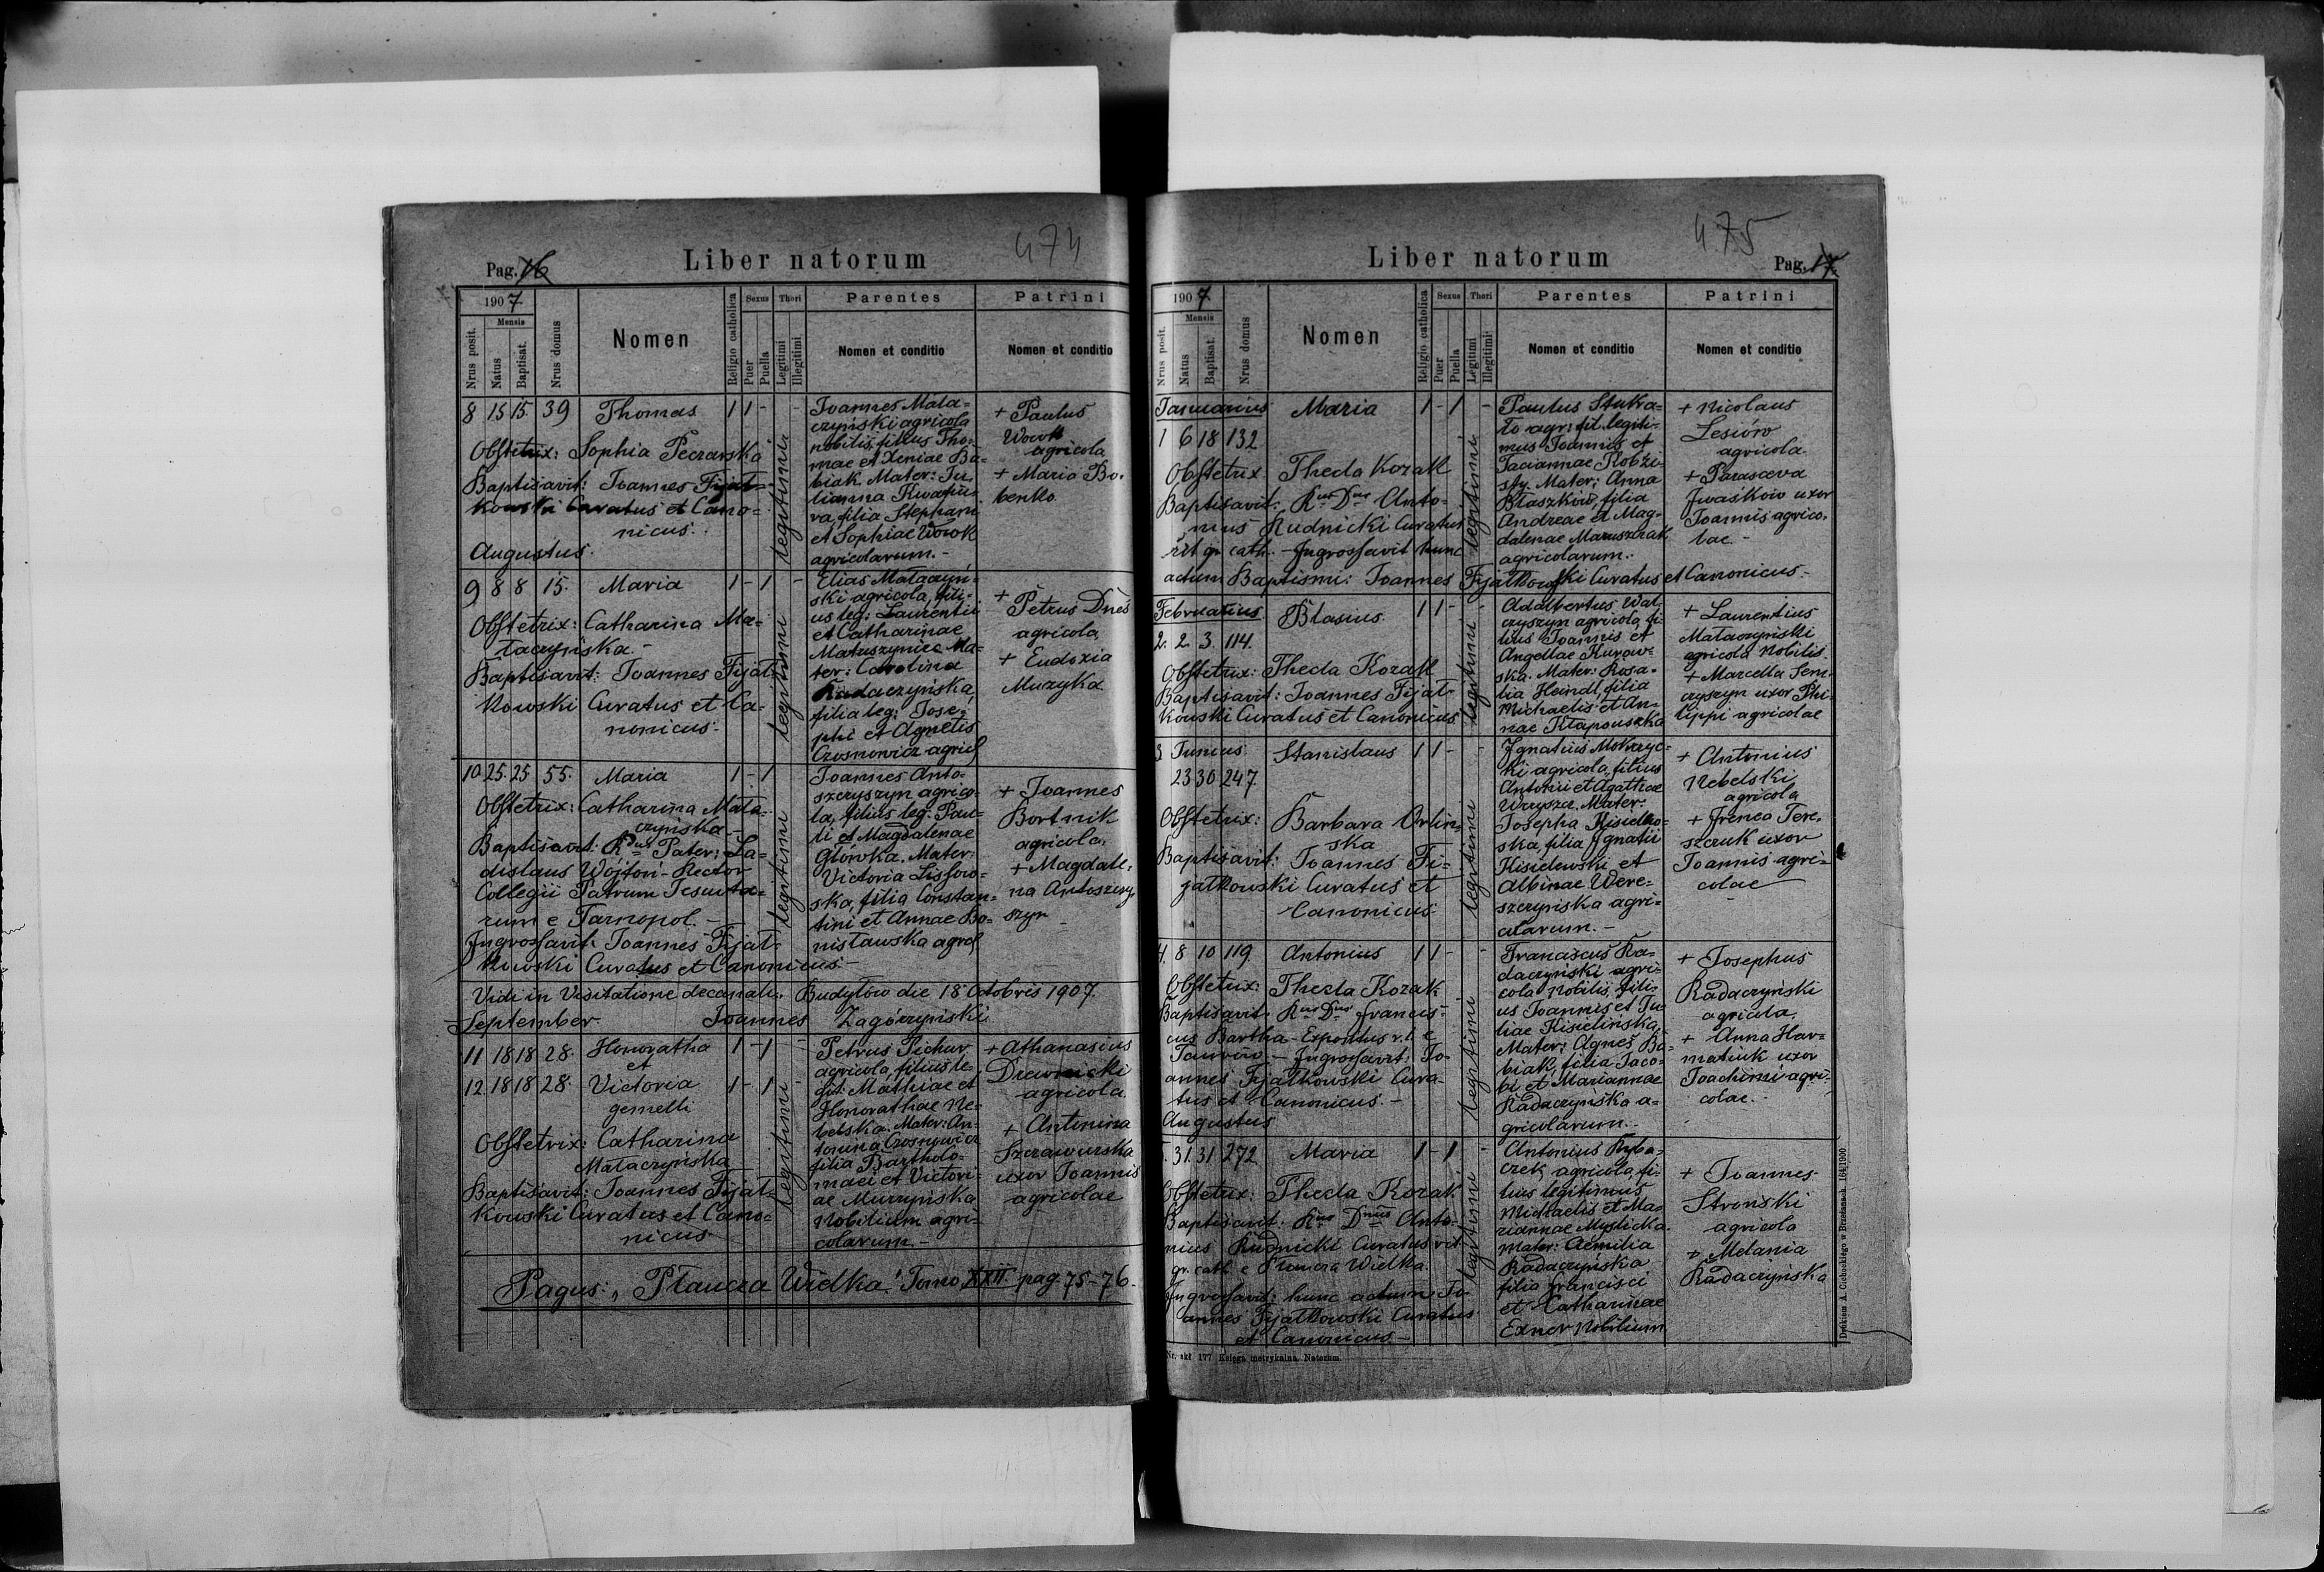 474
Pag. 16
Liber natorum
1907
Mensis
Nrus posit.
Natus
Baptisat.
Nrus domus
Nomen
Religio catholica
Sexus
Puer
Puella
Thori
Legitimi
Illegitimi
Parentes
Nomen et conditio
Patrini
Nomen et conditio
8 15 15. 39 Thomas 1 1 - -
Obstetrix: Sophia Peczarska
Baptisavit: Joannes Fijał=
kowski Curatus et Cano=
nicus.
legitimi
Joannes Mata=
czyński agricola
nobilis, filius Tho=
mae et Xeniae Ba=
biak. Mater: Ju=
lianna
filia Stephani
et Sophiae Wowk
agricolarum.-
+ Paulus
Wowk
agricola
+ Maria Bo=
benko
Augustus.
9 8 8 15. Maria 1 - 1 -
Obstetrix: Catharina Ma=
taczyńska.-
Baptisavit: Joannes Fijał=
kowski Curatus et Ca=
nonicus.-
legitimi
Elias Mataczyń=
ski agricola, fili=
us leg: Laurentii
et Catharinae
Matuszynice Ma=
ter: Carolina
Radaczyńska,
filia leg: Jose=
phi et Agnetis
Czosnowicz agricol
+
Petrus Dneś
agricola
+ Eudoxia
Muzyka
10 25. 25 55. Maria 1 - 1
Obstetrix: Catharina Mata=
czyńska.-
Baptisavit: Rdus Pater: La=
dislaus Wojtoń - Rector
Collegii Patrum Jesuita=
rum e Tarnopol.-
Ingrossavit: Joannes Fijał=
kowski Curatus et Canonicus.-
legitimi
Joannes Anto=
szczyszyn agrico=
la, filius leg: Pau=
li et Magdalenae
Główka. Mater:
Victoria Lissow=
ska, filia Constan=
tini et Annae Bo=
nisławska agrol
+ Joannes
Bortnik
agricola.
+ Magdale=
na Antoszczy
szyn
Vidi in Visitatione decanali. Budyłów die 18 Octobris 1907.
September. Joannes Zagórzyński
11 18 18 28. Honoratha 1 - 1
et
12. 18 18 28. Victoria 1 - 1 -
gemelli
Obstetrix: Catharina
Mataczyńska
Baptisavit: Joannes Fijał=
kowski Curatus et Cano=
nicus.
legitimi
Petrus Pichur
agricola, filius le=
git: Mathiae et
Honorathae Ne=
belska. Mater: An=
tonina Czosnowicz
filia Bartholo=
maei et Victori=
ae Murzyńska
Nobilium agri=
colarum.-
+ Athanasius
Drewnicki
agricola.
+ Antonina
Szczawurska
uxor Joannis
agricolae
Pagus: "Płaucza Wielka." Tomo XXII pag. 75-76.
475
Liber natorum
Pag. 17.
1907
Mensis
Nrus posit.
Natus
Baptisat.
Nrus domus
Nomen
Religio catholica
Sexus
Puer
Puella
Thori
Legitimi
Illegitimi
Parentes
Nomen et conditio
Patrini
Nomen et conditio
Januarius Maria 1 - 1 -
1 6 18 132
Obstetrix Thecla Kozak
Baptisavit: Rus Dnus Anto=
nius Rudnicki Curatus
rit. gr. cath.- Ingrossavit hunc
actum Baptismi: Joannes Fijałkowski Curatus et Canonicus.-
legitimi
Paulus Stuka=
ło agr: fil. legiti=
mus Joannis et
Taciannae
Mater: Anna
Błaszków, filia
Andreae et Mag=
dalenae Maruszczak
agricolarum.
+ Nicolaus
Lesiów
agricola.
+ Parasceva
Iwaśków uxor
Joannis agrico=
lae.-
Februarius Blasius 1 1 - -
2. 2 3. 114.
Obstetrix: Thecla Kozak
Baptisavit: Joannes Fijał=
kowski Curatus et Canonicus
legitimi
Adalbertus Wal=
czyszyn agricola, fi=
lius Joannis et
Angellae Kurow=
ska. Mater: Rosa=
lia Heindl, filia
Michaelis et An=
nae Kłapouszka
+ Laurentius
Mataczyński
agricola Nobilis
+ Marcella Sem=
czyszyn uxor Phi=
lippi agricolae
3 Junius Stanislaus 1 1 - -
23 30 247.
Obstetrix: Barbara Orlin=
ska
Baptisavit: Joannes Fi=
jałkowski Curatus et
Canonicus.
legitimi
Ignatius Mokrzyc=
ki agricola, filius
Antonii et Agathae
Wrzyszcz. Mater:
Josepha Kisielew=
ska, filia Ignatii
Kisielewski et
Albinae Were=
szczyńska agri=
colarum.-
+ Antonius
Nebelski
agricola
+ Irenea Tere=
szczuk uxor
Joannis agri=
colae
4. 8 10 119. Antonius 1 1 - -
Obstetrix: Thecla Kozak
Baptisavit: Rus Dnus Francis=
cus Bartha - Expositus r. l. e
Taurów.- Ingrossavit: Jo=
annes Fijałkowski Cura=
tus et Canonicus.-
Augustus
legitimi
Franciscus Ra=
daczyński agri=
cola Nobilis, fili=
us Joannis et Ju=
liae Kisielińska,
Mater: Agnes Ba=
biak, filia Jaco=
bi et Mariannae
Radaczyńska a=
gricolarum.
+ Josephus
Radaczyński
agricola.
+ Anna Har=
matiuk uxor
Joachimi agri=
colae.-
5. 31. 31 272 Maria 1 - 1 -
Obstetrix: Thecla Kozak
Baptisavit: Rus Dnus Anto=
nius Rudnicki Curatus rit.
gr. cath. e Płaucza Wielka.
Ingrossavit: hunc actum Jo=
annes Fijałkowski Curatus
et Canonicus.-
legitimi
Antonius Ryba=
czek agricola, fi=
lius legitimus
Michaelis et Ma=
riannae Mysticka.
Mater: Aemilia
Radaczyńska
filia Francisci
et Catharinae
Exner Nobilium
+ Joannes
Stronski
agricola
+ Melania
Radaczyńska
Nr. skł. 177 Księga metrykalna. Natorum.
Drukiem A. Cichockiego w Brzeżanach. 164|1900.